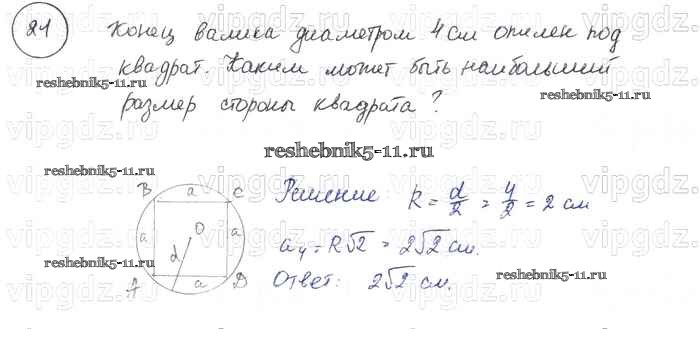 24 Конец валика диаметром 4 см опилен под
квадрат. Каким может быть наибольший
reshebnik5-11.ru
reshebnik5-11.ru
размер стороны квадрата?
reshebnik5-11.ru
reshebnik5-11.ru
B a C Решение: R = d/2 = 4/2 = 2 см
a O a
d a₄ = R√2 = 2√2 см.
reshebnik5-11.ru
reshebnik5-11.ru
A a D Ответ: 2√2 см.
vipgdz.ru